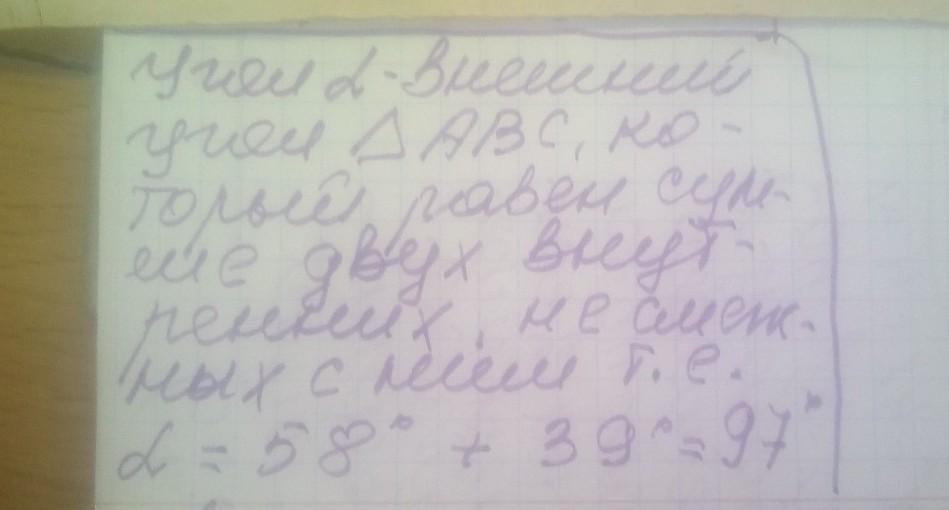 Угол α - внешний
угол △ABC, ко-
торый равен сум-
ме двух внут-
ренних, не смеж-
ных с ним т.е.
α = 58° + 39° = 97°